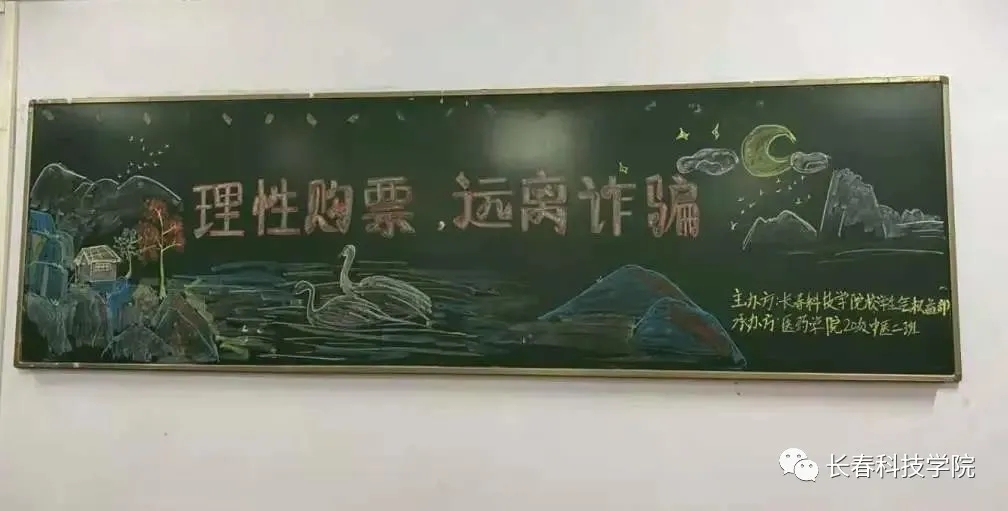 理性购票，远离诈骗
主办方：长春科技学院校学生会权益部
承办方：医药学院20级中医二班
长春科技学院